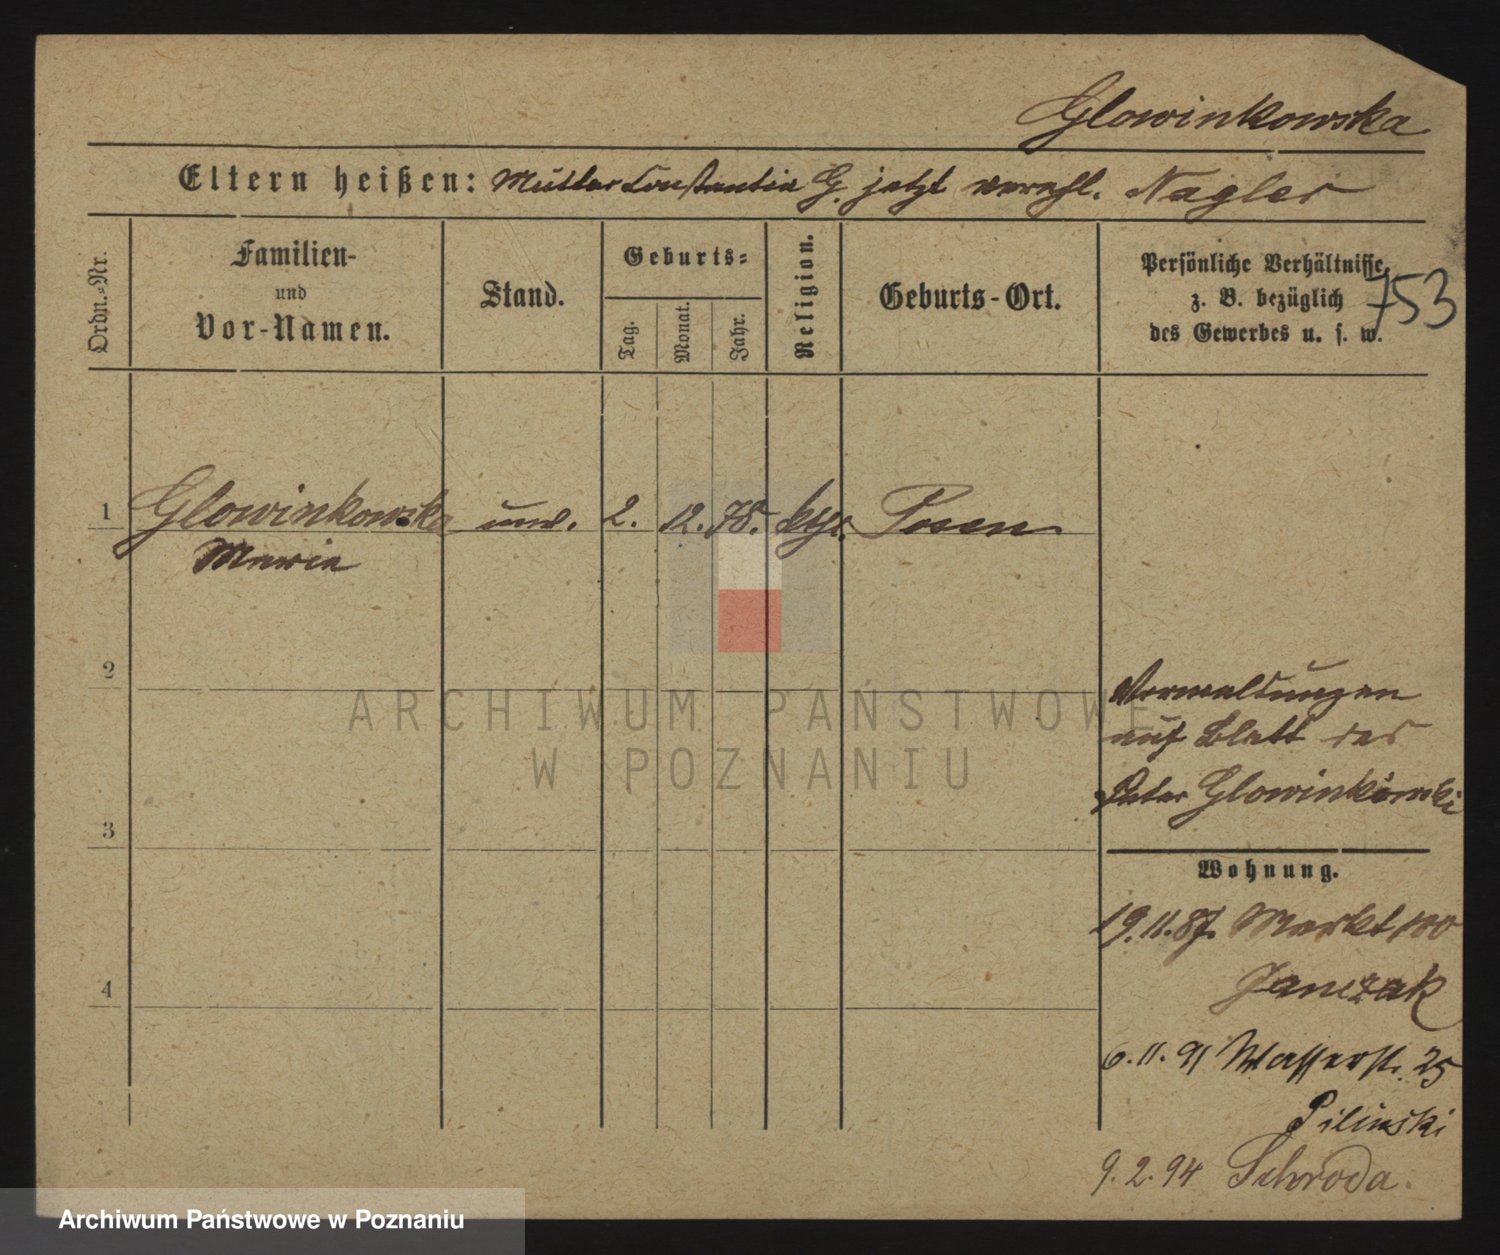 Glowinkowska
Eltern heißen: Mutter Constantia G. jetzt verehl. Nagler
Ordn.-Nr.
Familien-
und
Vor-Namen.
Stand.
Geburts-
Tag.
Monat.
Jahr.
Religion.
Geburts-Ort.
Persönliche Verhältnisse
z. B. bezüglich
des Gewerbes u. s. w.
753
1 Glowinkowska unv. 2. 12. 78. kthl. Posen
Maria
2
3
4
Verwaltungen
auf Blatt des
Peter Glowinkowski
Wohnung.
19.11.87. Markt 100
Janczak
6.11.91 Wasserstr. 25
Pilinski
9.2.94 Schroda.
ARCHIWUM PAŃSTWOWE
W POZNANIU
Archiwum Państwowe w Poznaniu